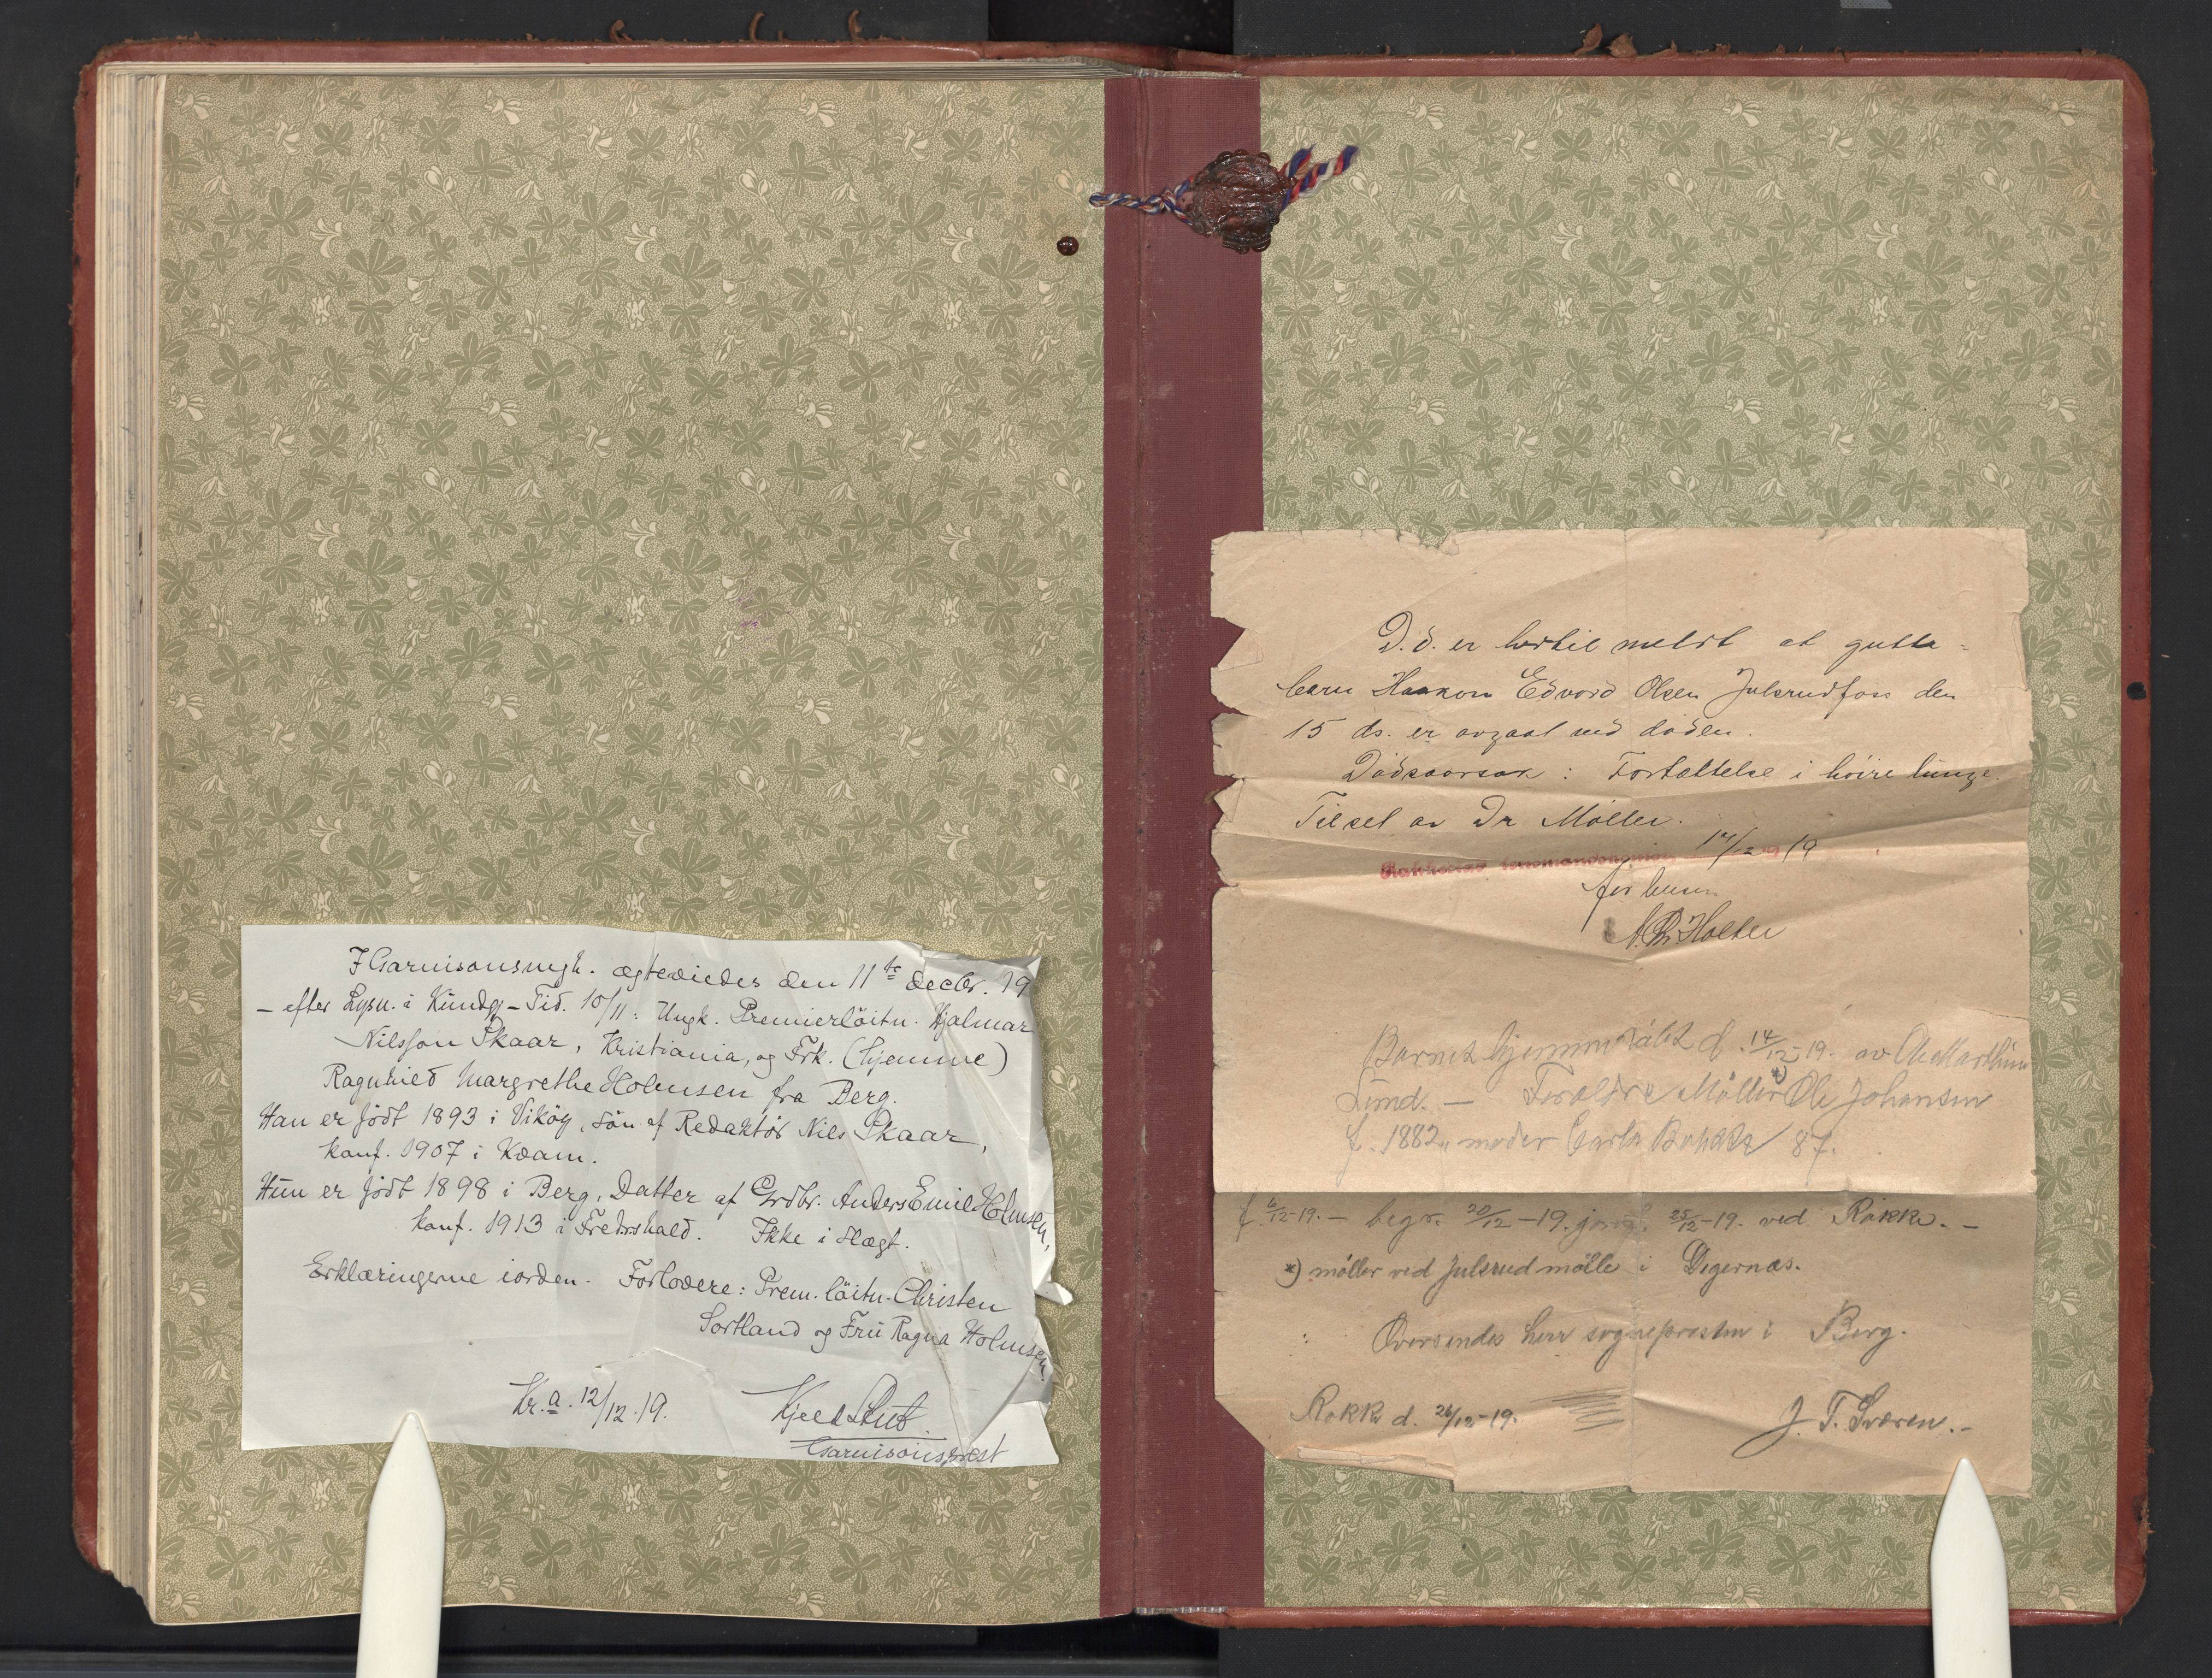 I Garnisonsmgh. ægteviedes den 11te decbr. 19
– efter Lysn. i Kundgj-Tid. 10/11: Ungk. Premierlöitn. Hjalmar
Nilsson Skaar, Kristiania, og Frk. (hjemme)
Ragnhild Margrethe Holmsen fra Berg.
Han er födt 1893 i Vikög, Sön af Redaktör Nils Skaar,
konf. 1907 i Kvam.
Hun er födt 1898 i Berg, Datter af Grdbr. Anders Emil Holmsen,
konf. 1913 i Fredrshald. Ikke i Slægt.
Erklæringerne iorden. Forlovere: Prem. löitn. Christen
Sortland og Fru Ragna Holmsen.
Kr.a. 12/12.19. Kjeld Stub.
Garnisonsprest
D.d. er hertil meldt at gutte-
barn Haakon Edvard Olsen Julsrudfoss den
15 ds. er avgaat ved döden.
Dödsaarsak: Fortættelse i höire lunge.
Tilset av Dr Möller.
17/12 19
N. Chr. Holter
Barnet hjemmedöbt d. 14/12-19. av
Lund. — Forældre Möller *) Ole Johansen
f. 1882, moder 87.
f. 6/12-19. — begr. 20/12-19. 25/12-19. ved Rokke. —
*) möller ved Julsrud mölle i Degernæs.
Oversendes herr sognepresten i Berg.
Rokke d. 26/12-19. J. T. Sværen.-